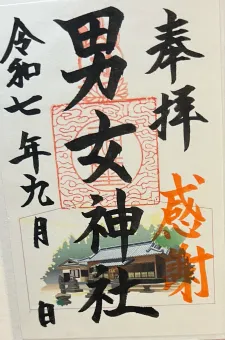 奉拝
感謝
男女神社
令和七年九月 日